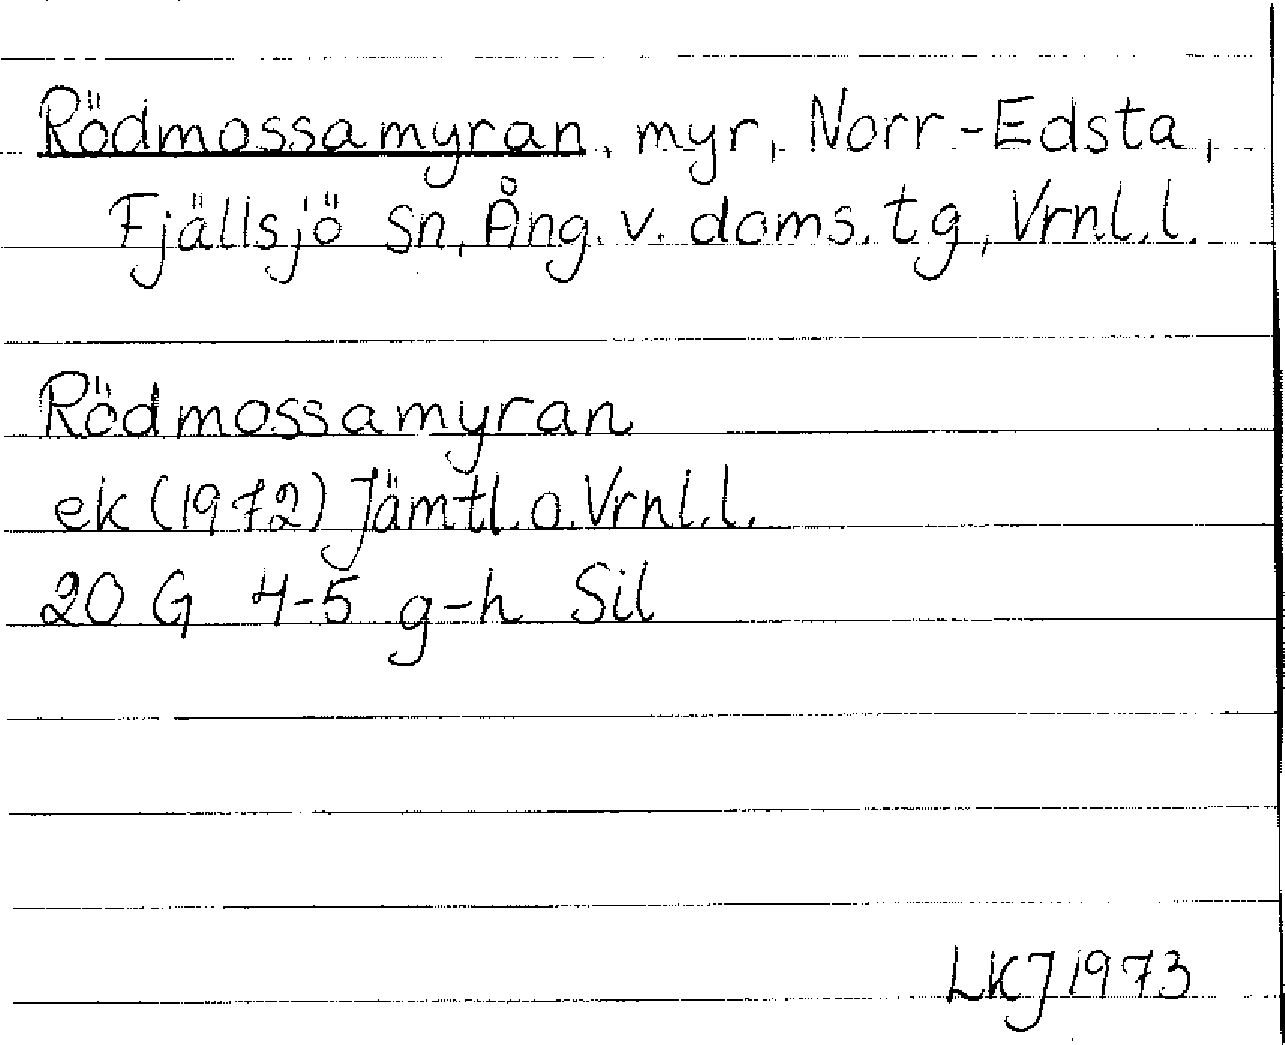 Rödmossamyran, myr, Norr-Edsta,
Fjällsjö sn, Ång. v. doms. tg, Vrnl.l.
Rödmossamyran
ek (1972) Jämtl. o. Vrnl.l.
20 G 4-5 g-h Sil
LKJ 1973